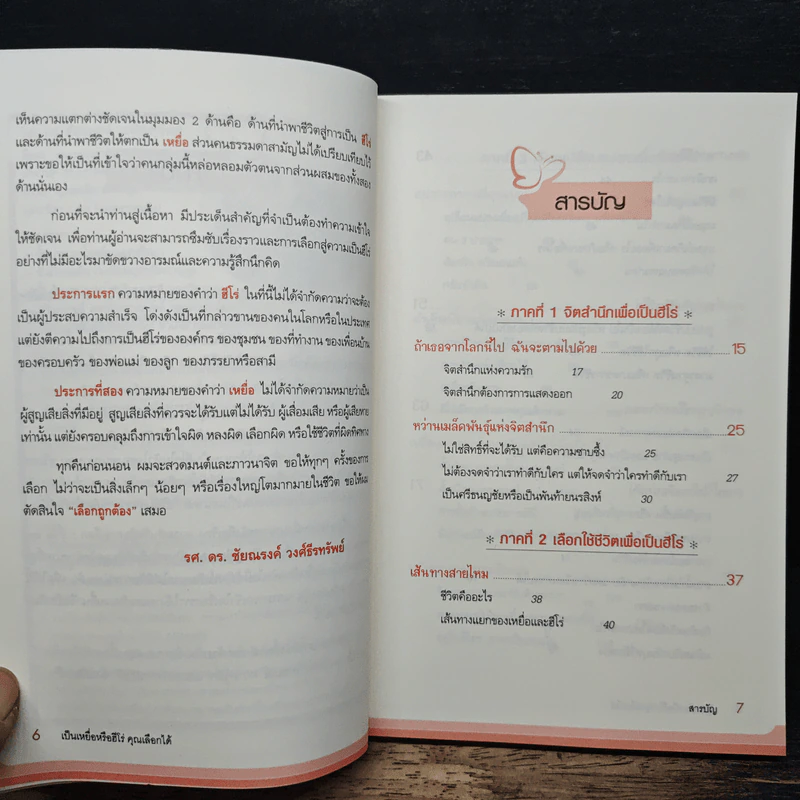 เห็นความแตกต่างชัดเจนในมุมมอง 2 ด้านคือ ด้านที่นำพาชีวิตสู่การเป็น ฮีโร่
และด้านที่นำพาชีวิตให้ตกเป็น เหยื่อ ส่วนคนธรรมดาสามัญไม่ได้เปรียบเทียบไว้
เพราะขอให้เป็นที่เข้าใจว่าคนกลุ่มนี้หล่อหลอมตัวตนจากส่วนผสมของทั้งสอง
ด้านนั่นเอง
ก่อนที่จะนำท่านสู่เนื้อหา มีประเด็นสำคัญที่จำเป็นต้องทำความเข้าใจ
ให้ชัดเจน เพื่อท่านผู้อ่านจะสามารถซึมซับเรื่องราวและการเลือกสู่ความเป็นฮีโร่
อย่างที่ไม่มีอะไรมาขัดขวางอารมณ์และความรู้สึกนึกคิด
ประการแรก ความหมายของคำว่า ฮีโร่ ในที่นี้ไม่ได้จำกัดความว่าจะต้อง
เป็นผู้ประสบความสำเร็จ โด่งดังเป็นที่กล่าวขานของคนในโลกหรือในประเทศ
แต่ยังตีความไปถึงการเป็นฮีโร่ขององค์กร ของชุมชน ของที่ทำงาน ของเพื่อนบ้าน
ของครอบครัว ของพ่อแม่ ของลูก ของภรรยาหรือสามี
ประการที่สอง ความหมายของคำว่า เหยื่อ ไม่ได้จำกัดความหมายว่าเป็น
ผู้สูญเสียสิ่งที่มีอยู่ สูญเสียสิ่งที่ควรจะได้รับแต่ไม่ได้รับ ผู้เสื่อมเสีย หรือผู้เสียหาย
เท่านั้น แต่ยังครอบคลุมถึงการเข้าใจผิด หลงผิด เลือกผิด หรือใช้ชีวิตที่ผิดทิศทาง
ทุกคืนก่อนนอน ผมจะสวดมนต์และภาวนาจิต ขอให้ทุกๆ ครั้งของการ
เลือก ไม่ว่าจะเป็นสิ่งเล็กๆ น้อยๆ หรือเรื่องใหญ่โตมากมายในชีวิต ขอให้ผม
ตัดสินใจ "เลือกถูกต้อง" เสมอ
รศ. ดร. ชัยณรงค์ วงศ์ธีรทรัพย์
6 เป็นเหยื่อหรือฮีโร่ คุณเลือกได้
สารบัญ
* ภาคที่ 1 จิตสำนึกเพื่อเป็นฮีโร่ *
ถ้าเธอจากโลกนี้ไป ฉันจะตามไปด้วย 15
จิตสำนึกแห่งความรัก 17
จิตสำนึกต้องการการแสดงออก 20
หว่านเมล็ดพันธุ์แห่งจิตสำนึก 25
ไม่ใช่สิทธิ์ที่จะได้รับ แต่คือความซาบซึ้ง 25
ไม่ต้องจดจำว่าเราทำดีกับใคร แต่ให้จดจำว่าใครทำดีกับเรา 27
เป็นศรีธนญชัยหรือเป็นพันท้ายนรสิงห์ 30
* ภาคที่ 2 เลือกใช้ชีวิตเพื่อเป็นฮีโร่ *
เส้นทางสายไหม 37
ชีวิตคืออะไร 38
เส้นทางแยกของเหยื่อและฮีโร่ 40
สารบัญ 7